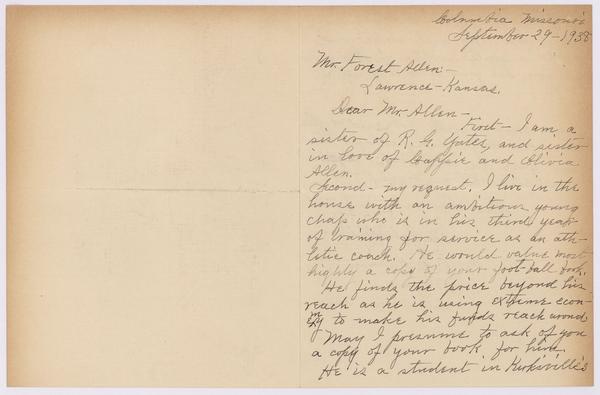 Columbia Missouri
September 29-1938
Mr. Forest Allen:-
Lawrence-Kansas.
Dear Mr. Allen-
First- I am a
sister of R. G. Yates, and sister
in love of Cappie and Olivia
Allen.
Second- my request. I live in the
house with an ambitious young
chap who is in his third year
of training for service as an ath-
letic coach. He would value most
highly a copy of your foot-ball book.
He finds the price beyond his
reach as he is using extreme econ-
omy to make his funds reach around.
May I presume to ask of you
a copy of your book for him.
He is a student in Kirksville's